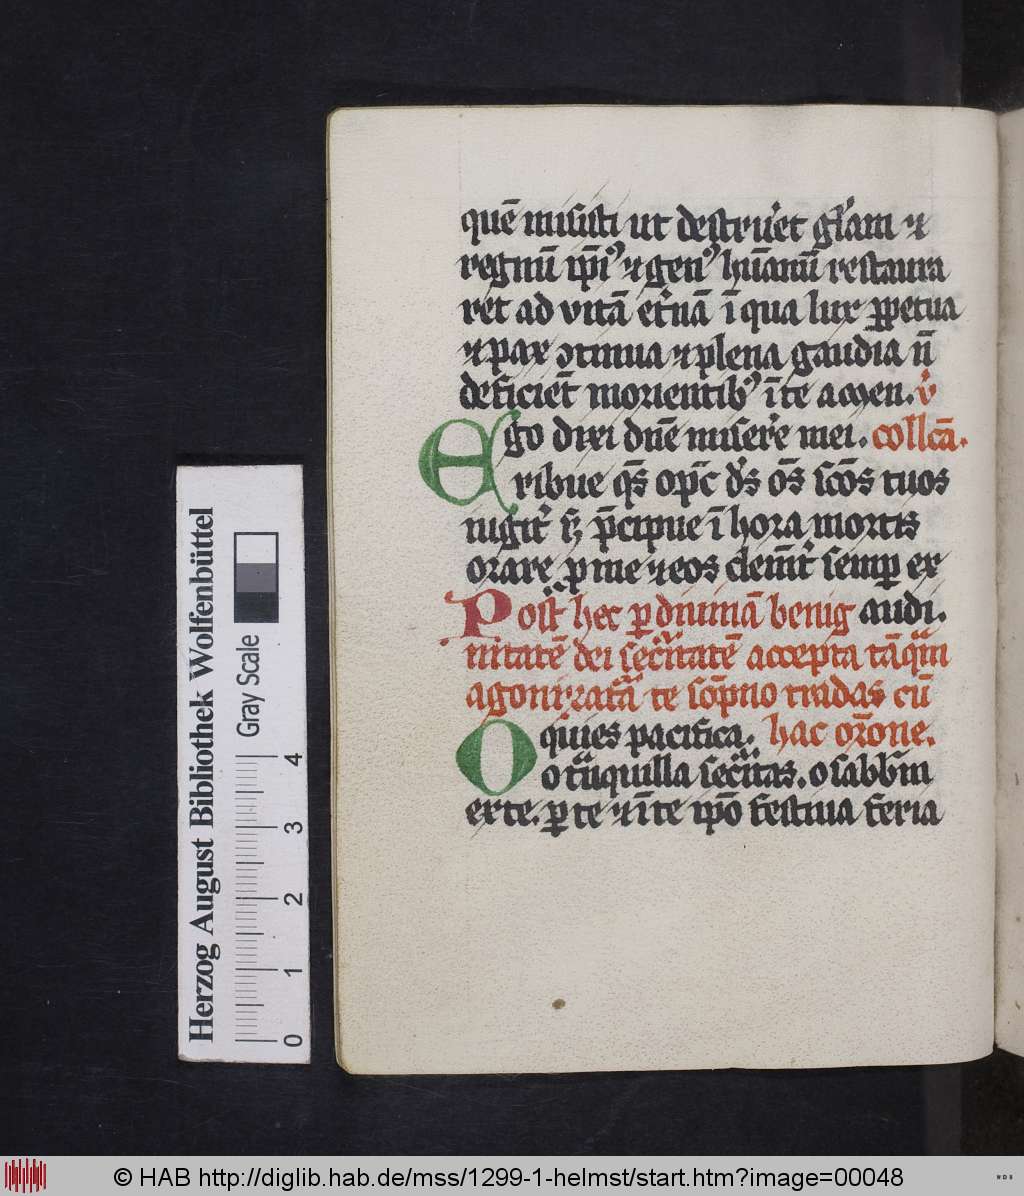 quē misisti ut destrueret glam ⁊
regnū ip̄iꝰ ⁊ genꝰ hūanū restaura
ret ad vitā et̓nā ī qua lux ꝑpetua
⁊ pax ꝯtinua ⁊ plena gaudia n̄
deficiēt morientibꝰ ī te amen. v̓
Ego dixi dn̄e miser̓e mei. collcā.
Tribue qs̄ op̄c ds̄ oēs scōs tuos
iugit̓ sꝫ p̄cipue ī hora mortis
orare ꝓ me ⁊ eos clemt̓ semꝑ ex
Post hec ꝑ diuinā benig audi.
nitatē dei secuitatē accepta tāqm
agonizatā te sōpno tradas cū
O quies pacifica. hac orōne.
o tnquilla secitas. o sabbm
ex te. ꝑ te ⁊ ī te ip̄o festiua feria
Herzog August Bibliothek Wolfenbüttel
Gray Scale
0 1 2 3 4
© HAB http://diglib.hab.de/mss/1299-1-helmst/start.htm?image=00048